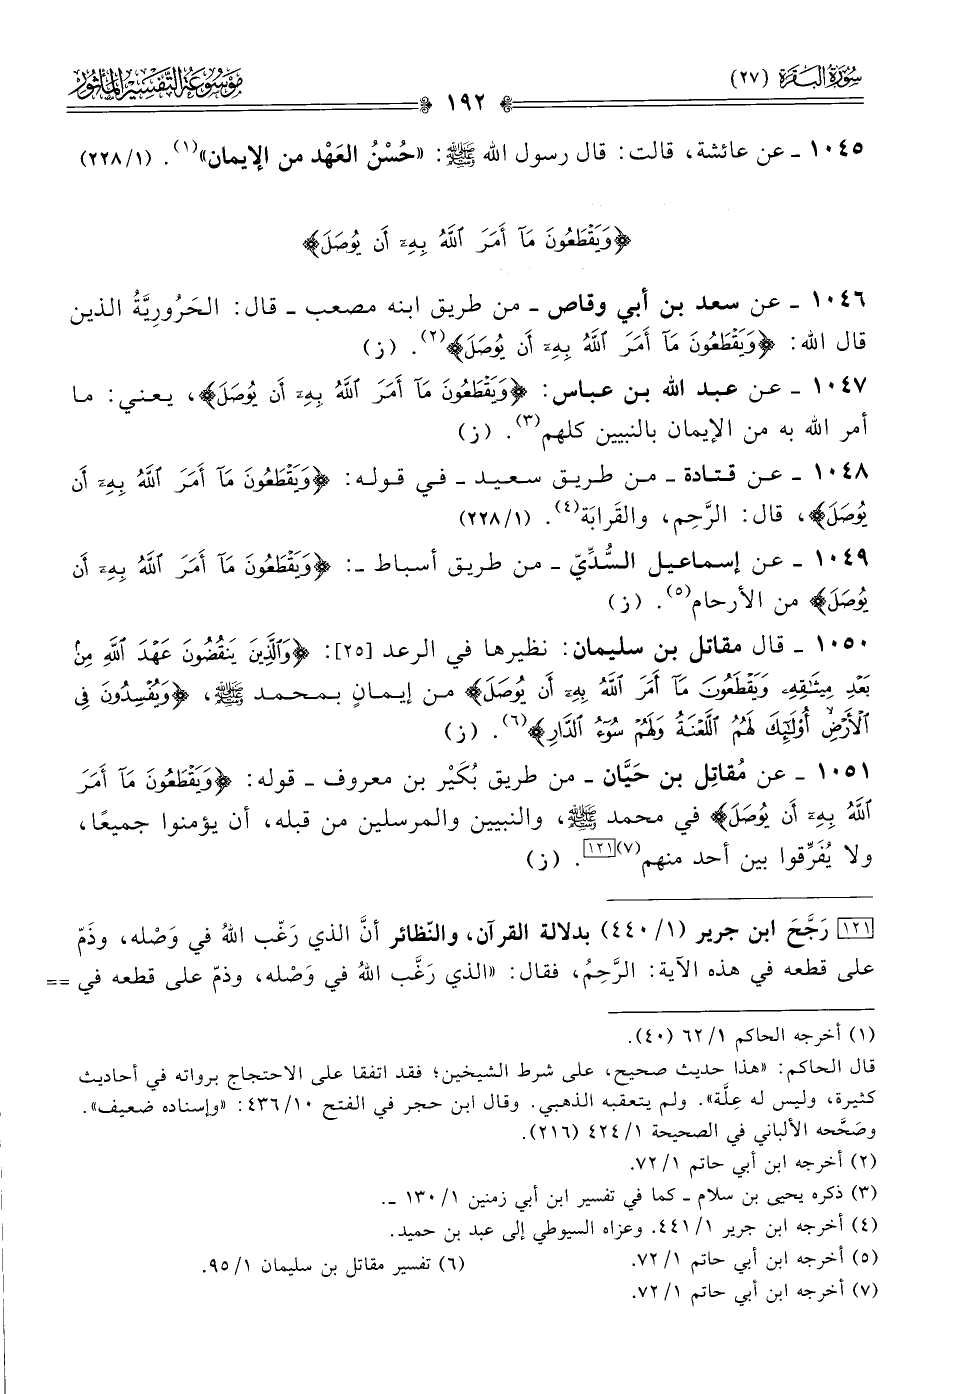 سُورَةُ البَقَرَة (٢٧)
١٩٢
مَوْسُوعَة التَّفْسِير المَأْثُور
١٠٤٥ ـ عن عائشة، قالت: قال رسول الله ﷺ: «حُسْنُ العَهْد من الإيمان»(١). (٢٢٨/١)
﴿وَيَقْطَعُونَ مَآ أَمَرَ ٱللَّهُ بِهِۦٓ أَن يُوصَلَ﴾
١٠٤٦ ـ عن سعد بن أبي وقاص ـ من طريق ابنه مصعب ـ قال: الحَرُورِيَّةُ الذين
قال الله: ﴿وَيَقْطَعُونَ مَآ أَمَرَ ٱللَّهُ بِهِۦٓ أَن يُوصَلَ﴾(٢). (ز)
١٠٤٧ ـ عن عبد الله بن عباس: ﴿وَيَقْطَعُونَ مَآ أَمَرَ ٱللَّهُ بِهِۦٓ أَن يُوصَلَ﴾، يعني: ما
أمر الله به من الإيمان بالنبيين كلهم(٣). (ز)
١٠٤٨ ـ عن قتادة ـ من طريق سعيد ـ في قوله: ﴿وَيَقْطَعُونَ مَآ أَمَرَ ٱللَّهُ بِهِۦٓ أَن
يُوصَلَ﴾، قال: الرَّحِم، والقَرابَة(٤). (٢٢٨/١)
١٠٤٩ ـ عن إسماعيل السُّدِّيّ ـ من طريق أسباط ـ: ﴿وَيَقْطَعُونَ مَآ أَمَرَ ٱللَّهُ بِهِۦٓ أَن
يُوصَلَ﴾ من الأرحام(٥). (ز)
١٠٥٠ ـ قال مقاتل بن سليمان: نظيرها في الرعد [٢٥]: ﴿وَٱلَّذِينَ يَنقُضُونَ عَهْدَ ٱللَّهِ مِنۢ
بَعْدِ مِيثَٰقِهِۦ وَيَقْطَعُونَ مَآ أَمَرَ ٱللَّهُ بِهِۦٓ أَن يُوصَلَ﴾ من إيمانٍ بمحمد ﷺ، ﴿وَيُفْسِدُونَ فِى
ٱلْأَرْضِ ۙ أُو۟لَٰٓئِكَ لَهُمُ ٱللَّعْنَةُ وَلَهُمْ سُوٓءُ ٱلدَّارِ﴾(٦). (ز)
١٠٥١ ـ عن مُقاتِل بن حَيَّان ـ من طريق بُكَيْر بن معروف ـ قوله: ﴿وَيَقْطَعُونَ مَآ أَمَرَ
ٱللَّهُ بِهِۦٓ أَن يُوصَلَ﴾ في محمد ﷺ، والنبيين والمرسلين من قبله، أن يؤمنوا جميعًا،
ولا يُفَرِّقوا بين أحد منهم(٧)[١٢١]. (ز)
[١٢١] رَجَّحَ ابن جرير (٤٤٠/١) بدلالة القرآن، والنّظائر أنَّ الذي رَغّب اللهُ في وَصْله، وذَمّ
على قطعه في هذه الآية: الرَّحِمُ، فقال: «الذي رَغَّب اللهُ في وَصْله، وذمّ على قطعه في ==
(١) أخرجه الحاكم ٦٢/١ (٤٠).
قال الحاكم: «هذا حديث صحيح، على شرط الشيخين؛ فقد اتفقا على الاحتجاج برواته في أحاديث
كثيرة، وليس له عِلَّة». ولم يتعقبه الذهبي. وقال ابن حجر في الفتح ٤٣٦/١٠: «وإسناده ضعيف».
وصَحَّحه الألباني في الصحيحة ٤٢٤/١ (٢١٦).
(٢) أخرجه ابن أبي حاتم ٧٢/١.
(٣) ذكره يحيى بن سلام ـ كما في تفسير ابن أبي زمنين ١٣٠/١ ـ.
(٤) أخرجه ابن جرير ٤٤١/١. وعزاه السيوطي إلى عبد بن حميد.
(٥) أخرجه ابن أبي حاتم ٧٢/١. (٦) تفسير مقاتل بن سليمان ٩٥/١.
(٧) أخرجه ابن أبي حاتم ٧٢/١.